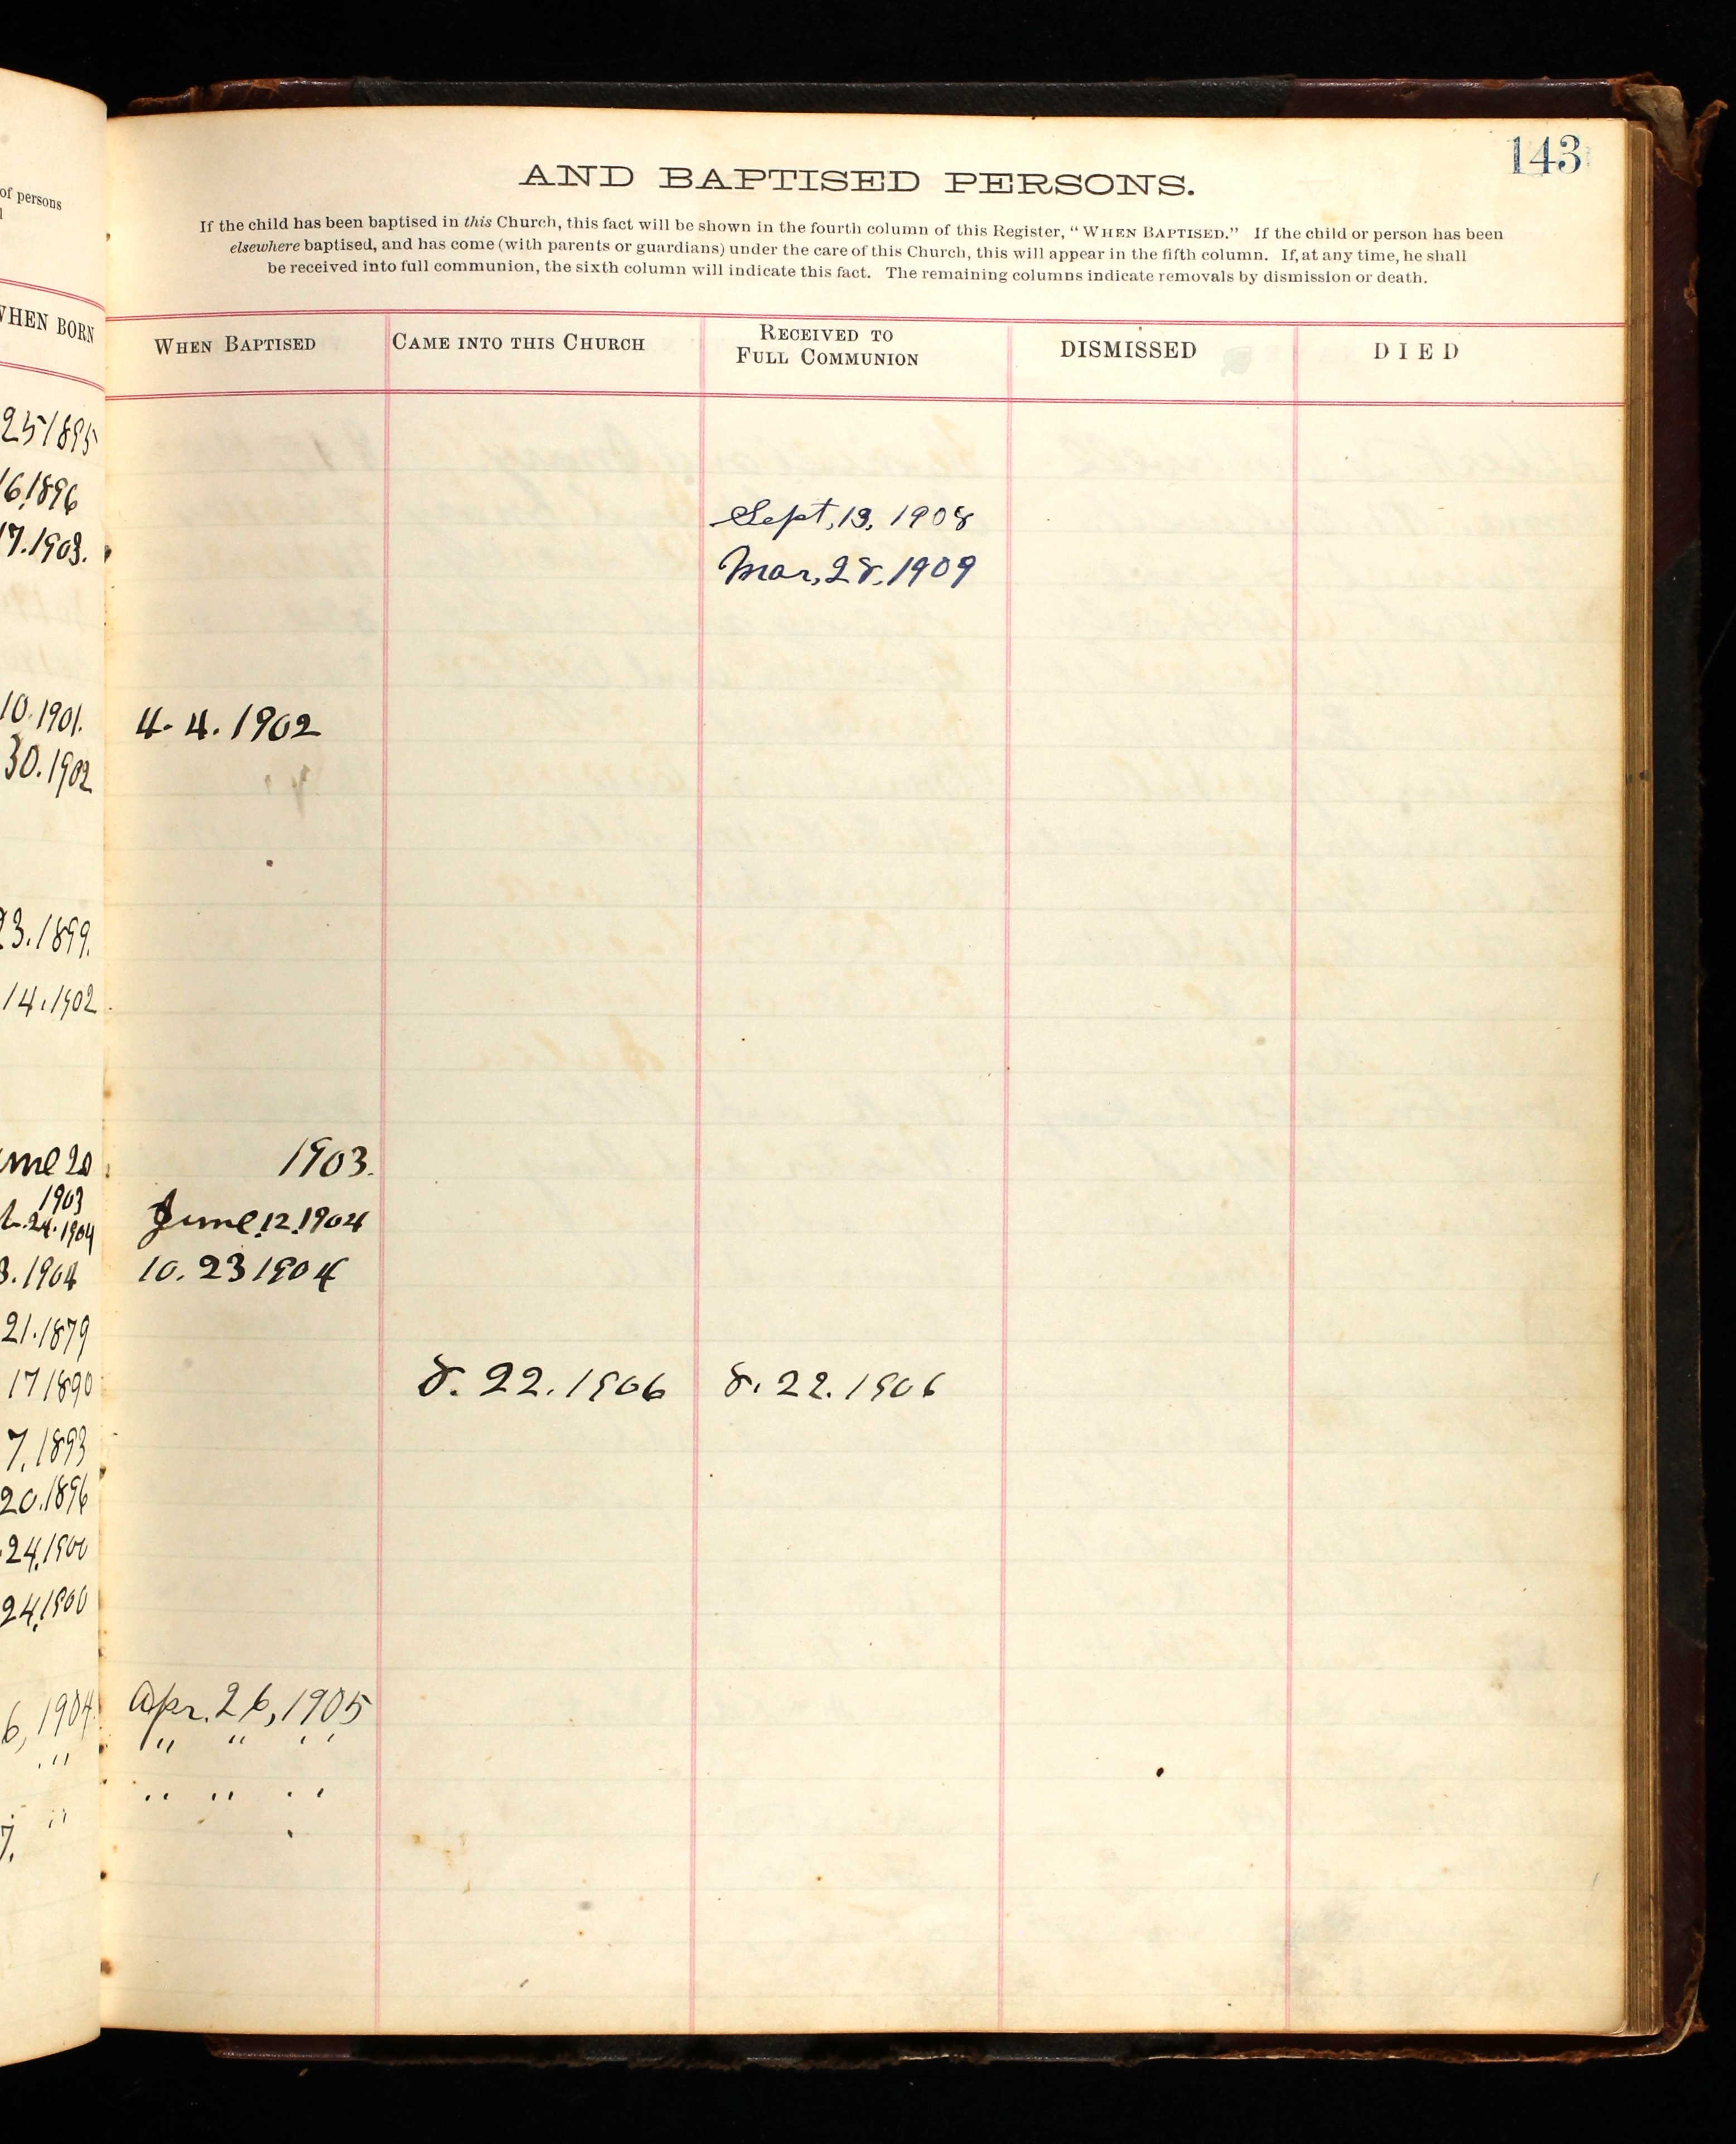 143
AND BAPTISED PERSONS.
of persons
If the child has been baptised in this Church, this fact will be shown in the fourth column of this Register, "WHEN BAPTISED." If the child or person has been
elsewhere baptised, and has come (with parents or guardians) under the care of this Church, this will appear in the fifth column. If, at any time, he shall
be received into full communion, the sixth column will indicate this fact. The remaining columns indicate removals by dismission or death.
WHEN BORN WHEN BAPTISED CAME INTO THIS CHURCH RECEIVED TO FULL COMMUNION DISMISSED DIED
25 1895
16.1896 Sept, 13, 1908
17.1903. Mar, 28, 1909
10.1901. 4. 4. 1902
30.1902
23.1899.
14.1902
20 1903.
1903
24.1904 June 12, 1904
3.1904 10. 23 1904
21.1879
17 1890 8. 22. 1906 8. 22. 1906
7.1893
20.1896
24.1900
24.1900
6, 1904 Apr. 26, 1905
" " " "
" " " "
7.